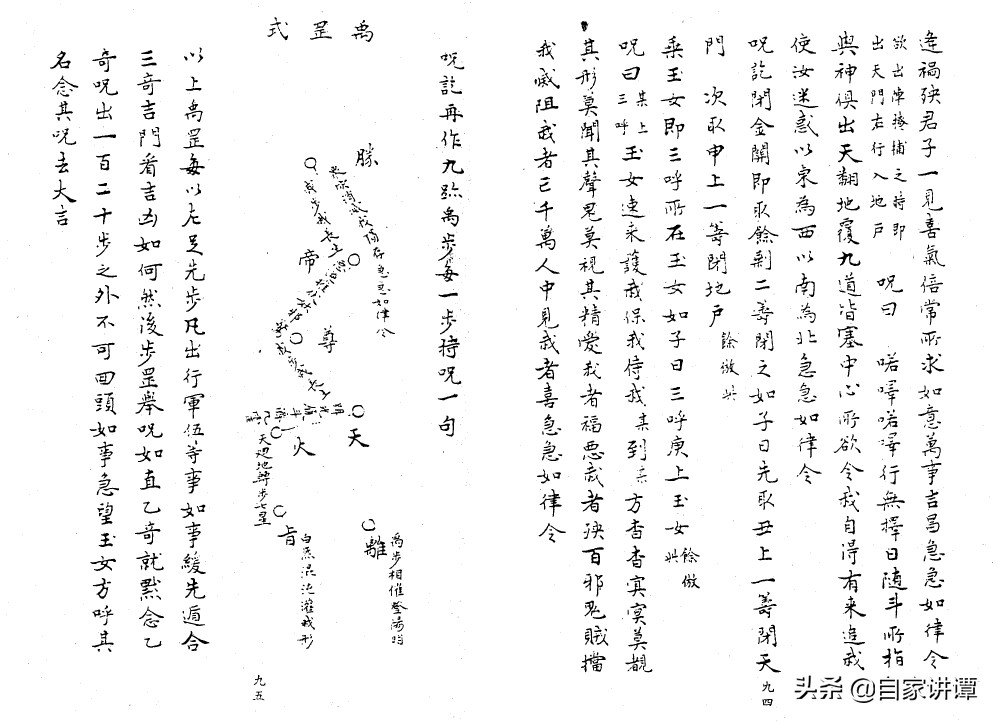 逢禍殃君子一見喜氣倍常所求如意萬事吉昌急急如律令
欲出陣掩捕之時即
出天門右行入地戶
呪曰
啱嘩啱嘩行無擇日隨斗所指
與神俱出天翻地覆九道皆塞中心所欲令我自得有来追我
使汝迷惑以東為西以南為北急急如律令
呪訖閉金關即取餘剩二筭閉之如子日先取丑上一筭閉天
門 次取申上一筭閉地戶
餘倣此
乘玉女即三呼所在玉女如子日三呼庚上玉女
餘倣此
呪曰
某上
三呼
玉女速来護我保我侍我某到某方杳杳冥冥莫覩
其形莫聞其聲鬼莫視其精愛我者福惡我者殃百邪鬼賊擋
我滅阻我者亡千萬人中見我者喜急急如律令
九四
呪訖再作九跡禹步每一步持呪一句
禹罡式
勝
帝
尊
天
火
离
禹步相催登陽明
白炁混沌灌我形
天廻地轉步七星
急急如律令
以上禹罡每以左足先步凡出行軍伍等事如事緩先遁合
三奇吉門看吉凶如何然後步罡舉呪如直乙奇就默念乙
奇呪出一百二十步之外不可回頭如事急望玉女方呼其
名念其呪去大吉
九五
头条 @自家讲谭